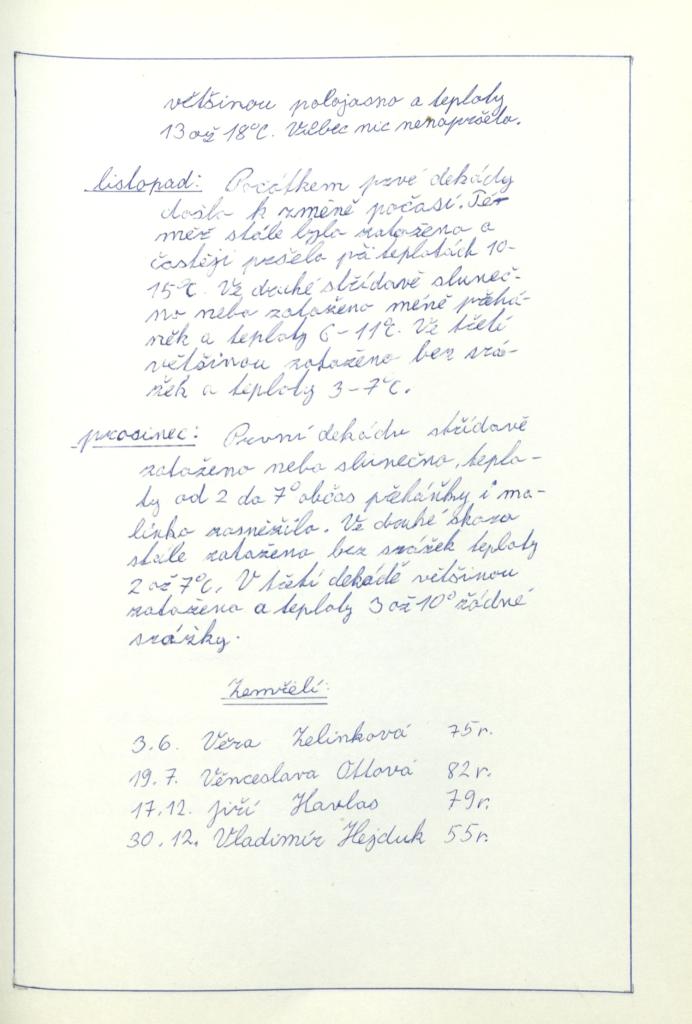 většinou polojasno a teploty
13 až 18°C. Vůbec nic nenapršelo.
listopad: Počátkem prvé dekády
došlo k změně počasí. Tér
měř stále bylo zataženo a
častěji pršelo při teplotách 10-
15°C. Ve druhé střídavě sluneč-
no nebo zataženo méně přehá-
něk a teploty 6-11°C. Ve třetí
většinou zataženo bez srá-
žek a teploty 3-7°C.
prosinec: První dekádu střídavě
zataženo nebo slunečno, teplo-
ty od 2 do 7° občas přeháňky i ma-
linko zasněžilo. Ve druhé skoro
stále zataženo bez srážek teploty
2 až 7°C. V třetí dekádě většinou
zataženo a teploty 3 až 10° žádné
srážky.
Zemřelí:
3.6. Věra Zelinková 75r.
19.7. Věnceslava Ottová 82r.
17.12. Jiří Havlas 79r.
30.12. Vladimír Hejduk 55r.